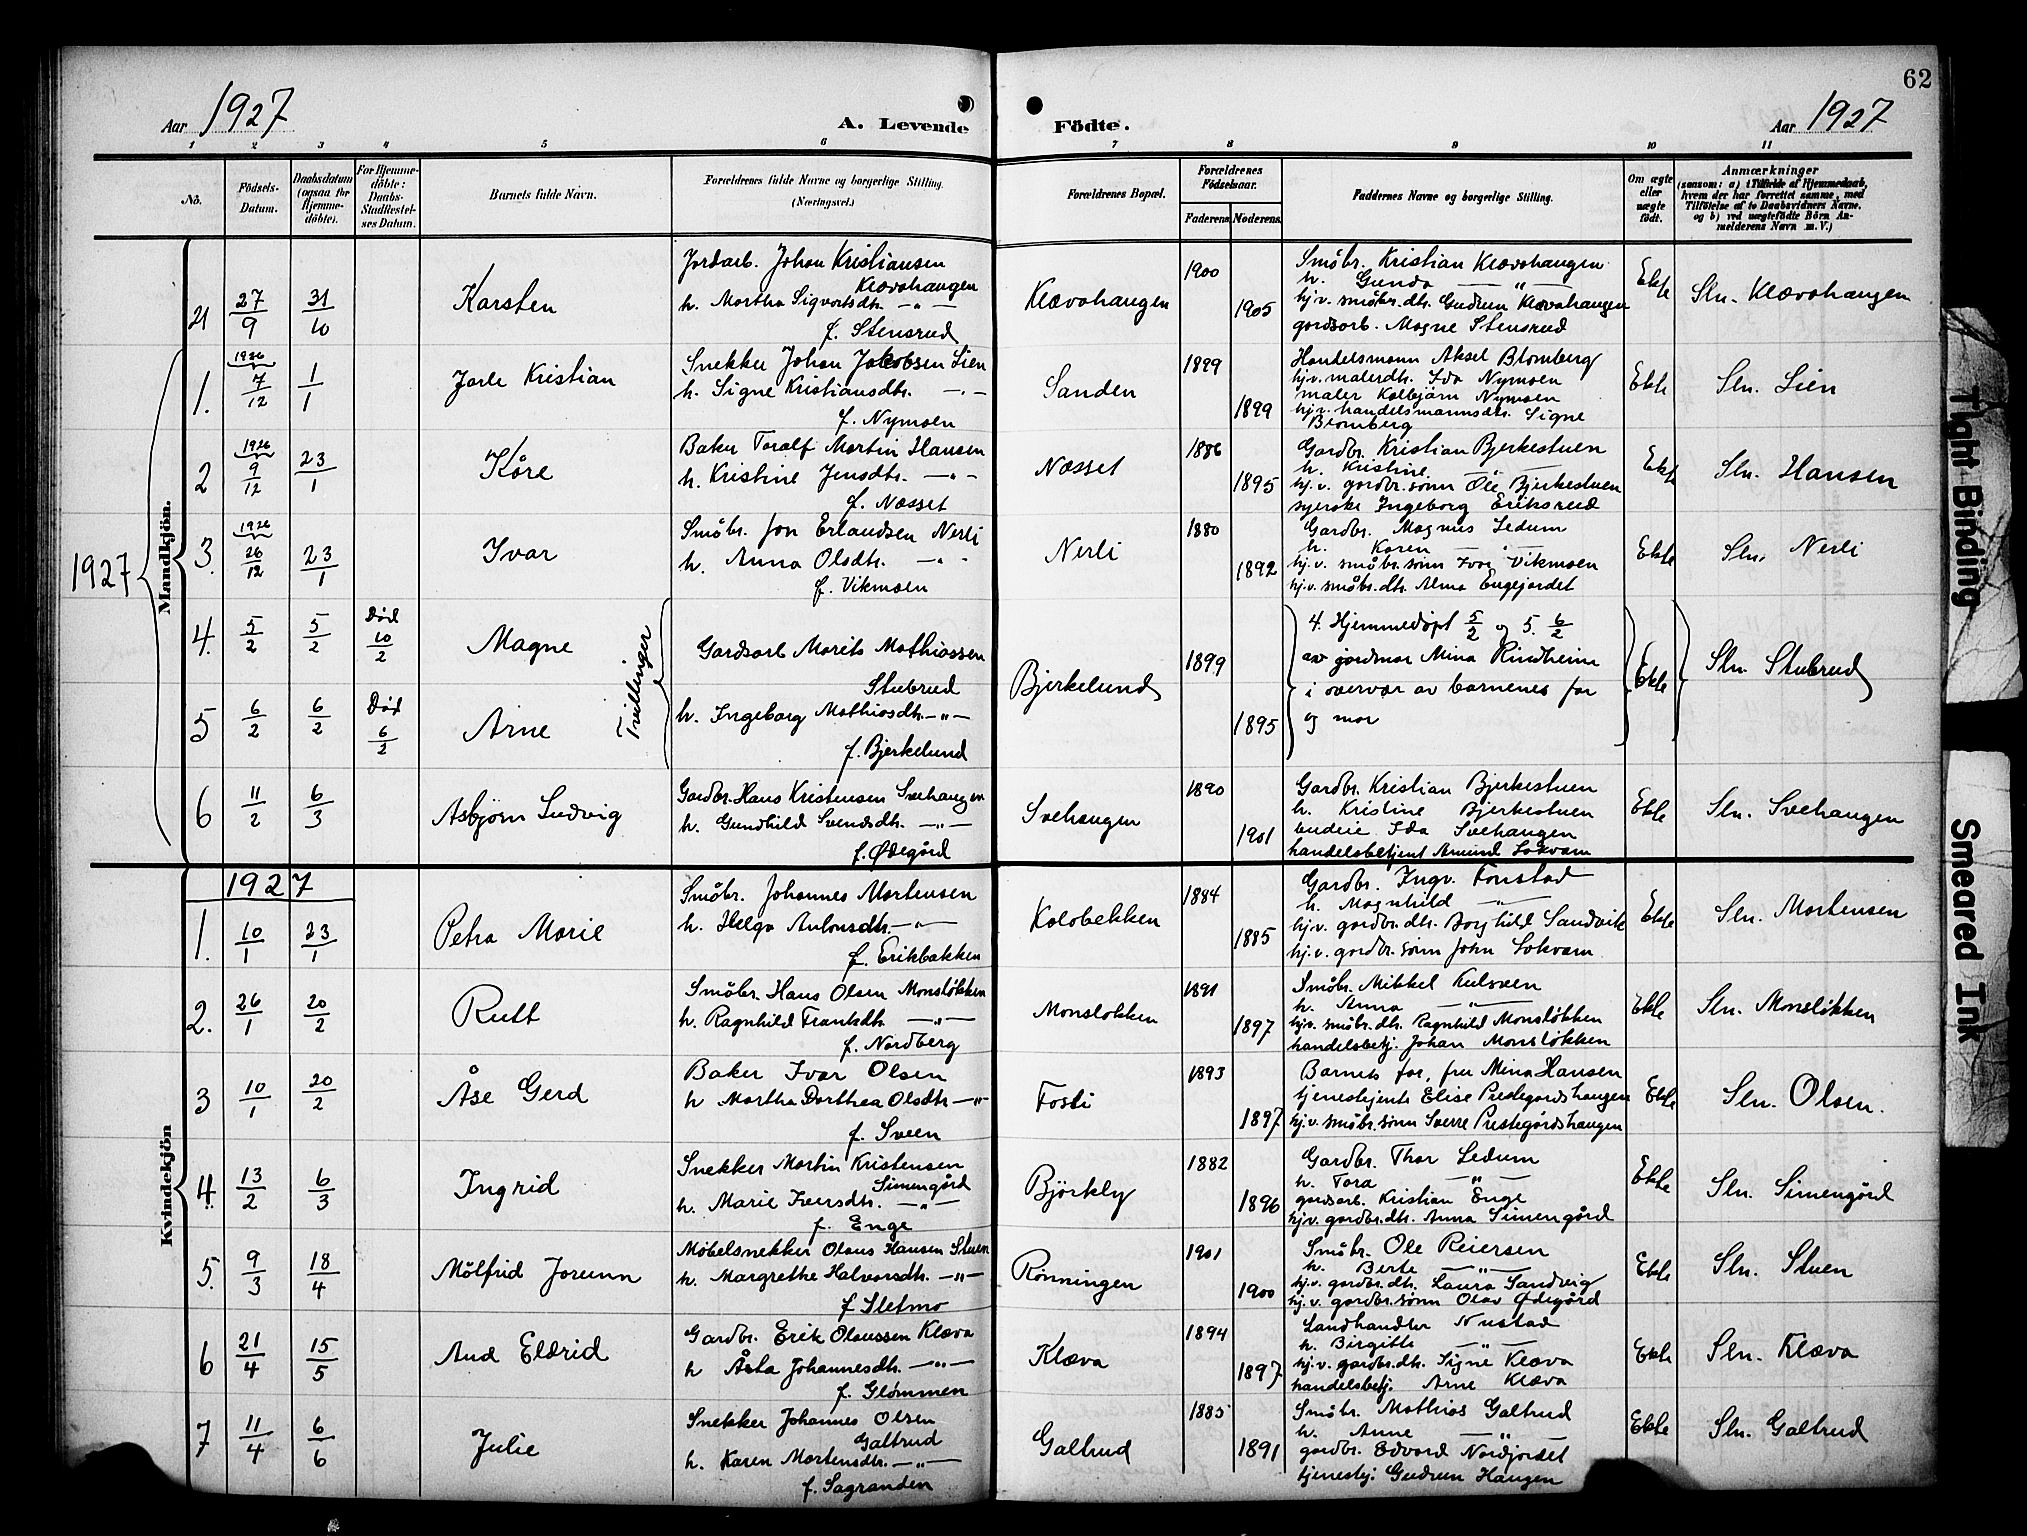 62
Aar 1927
A. Levende Födte.
Aar 1927
1 2 3 4 5 6 7 8 9 10 11
No.
Födsels-Datum.
Daabsdatum (ogsaa for Hjemme-döbte).
For Hjemme-döbte: Daabs-Stadfæstel-ses Datum.
Barnets fulde Navn.
Forældrenes fulde Navne og borgerlige Stilling. (Næringsvei.)
Forældrenes Bopæl.
Forældrenes Födselsaar.
Faderens. Moderens.
Faddernes Navne og borgerlige Stilling.
Om ægte eller uægte födt.
Anmærkninger
(saasom: a) i Tilfælde af Hjemmedaab, hvem der har forrettet samme, med Tilföielse af to Daabsvidners Navne, og b) ved uægtefödte Börn An-melderens Navn m. V.)
1927
Mandkjön.
21 27/9 31/10 Karsten
Jordarb. Johan Kristiansen
Klævahaugen
h. Martha Sigvartsdtr. -"-
f. Stensrud
Klævahaugen 1900 1905
Småbr. Kristian Klævahaugen
h. Gunda -"-
hj.v. småbr.dtr. Gudrun Klævahaugen
gardsarb. Magne Stensrud
Ekte Sln. Klævahaugen
1. 1926 7/12 1/1 Jarle Kristian
Snekker Johan Jakobsen Lien
h. Signe Kristiansdtr. -"-
f. Nymoen
Sanden 1899 1899
Handelsmann Aksel Blomberg
hj.v. malerdtr. Ida Nymoen
maler Kolbjørn Nymoen
hj.v. handelsmannsdtr. Signe
Blomberg
Ekte Sln. Lien
2 1926 9/12 23/1 Kåre
Baker Toralf Martin Hansen
h. Kristine Jensdtr. -"-
f. Næsset
Næsset 1886 1895
Gardbr. Kristian Bjerkestuen
h. Kristine -"-
hj.v. gardbr.sønn Ole Bjerkestuen
syerske Ingeborg Eriksrud
Ekte Sln. Hansen
3. 1926 26/12 23/1 Ivar
Småbr. Jon Erlandsen Nerli
h. Anna Olsdtr. -"-
f. Vikmoen
Nerli 1880 1892
Gardbr. Magnus Ledum
h. Karen -"-
hj.v. småbr.sønn Ivar Vikmoen
hj.v. småbr.dtr. Alma Engejordet
Ekte Sln. Nerli
4. 5/2 5/2 Død 10/2 Magne
5 6/2 6/2 Død 6/2 Arne
Tvillinger
Gardsarb Marits Mathiassen
Stubrud
h. Ingeborg Mathiasdtr. -"-
f. Bjerkelund
Bjerkelund 1899 1895
4. Hjemmedøpt 5/2 og 5. 6/2
av jordmor Mina Rindheim
i overvær av barnenes far
og mor
Ekte Sln. Stubrud
6 11/2 6/3 Asbjørn Ludvig
Gardbr. Hans Kristensen Svehaugen
h. Gundhild Svendsdtr. -"-
f. Ødegård
Svehaugen 1890 1901
Gardbr. Kristian Bjerkestuen
h. Kristine Bjerkestuen
budeie Ida Svehaugen
handelsbetjent Amund Løkvam
Ekte Sln. Svehaugen
1927
Kvindekjön
1. 10/1 23/1 Petra Marie
Småbr. Johannes Mortensen
h. Helga Antonsdtr. -"-
f. Erikbakken
Kolobekken 1884 1885
Gardbr. Ingv. Fonstad
h. Magnhild -"-
hj.v. gardbr.dtr. Borghild Sandvik
hj.v. gardbr.sønn John Løkvam
Ekte Sln. Mortensen
2. 26/1 20/2 Rutt
Småbr. Hans Olsen Monsløkken
h. Ragnhild Frantsdtr. -"-
f. Nordberg
Monsløkken 1891 1897
Småbr. Mikkel Kulsveen
h. Anna -"-
hj.v. småbr.dtr. Ragnhild Monsløkken
handelsbetj. Johan Monsløkken
Ekte Sln. Monsløkken
3 10/1 20/2 Åse Gerd
Baker Ivar Olsen
h Martha Dorthea Olsdtr -"-
f. Sveen
Fosli 1893 1897
Barnets far, fru Mina Hansen
tjenestejente Elise Prestegardshaugen
hj.v. småbr.sønn Sverre Prestegardshaugen
Ekte Sln. Olsen.
4. 13/2 6/3 Ingrid
Snekker Martin Kristensen
Simengård
h. Marie Iversdtr. -"-
f. Enge
Björkly 1882 1896
Gardbr. Thor Ledum
h. Tora -"-
gardsarb. Kristian Enge
hj.v. gardbr.dtr. Anna Simengård
Ekte Sln. Simengård
5. 9/3 18/4 Målfrid Jorunn
Møbelsnekker Olaus Hansen Stuen
h. Margrethe Halvorsdtr. -"-
f Sletmo
Rønningen 1901 1900
Småbr. Ole Reiersen
h. Berte -"-
hj.v. gardbr.dtr. Laura Sandvig
hj.v. gardbr.sønn Olav Ødegård
Ekte Sln. Stuen
6 21/4 15/5 Aud Eldrid
Gardbr. Erik Olaussen Klæva
h Åsta Johannesdtr. -"-
f. Glømmen
Klæva 1894 1897
Landhandler Nustad
h. Birgitte -"-
hj.v. gardbr.dtr. Signe Klæva
handelsbetj. Arne Klæva
Ekte Sln. Klæva
7 11/4 6/6 Julie
Snekker Johannes Olsen
Galtrud
h. Karen Mortensdtr. -"-
f. Sagranden
Galtrud 1885 1891
Småbr. Mathias Galtrud
h. Anne -"-
gardbr. Edvard Nordjordet
tjenestepj. Gudrun Haugen
Ekte Sln. Galtrud
Tight Binding
Smeared Ink